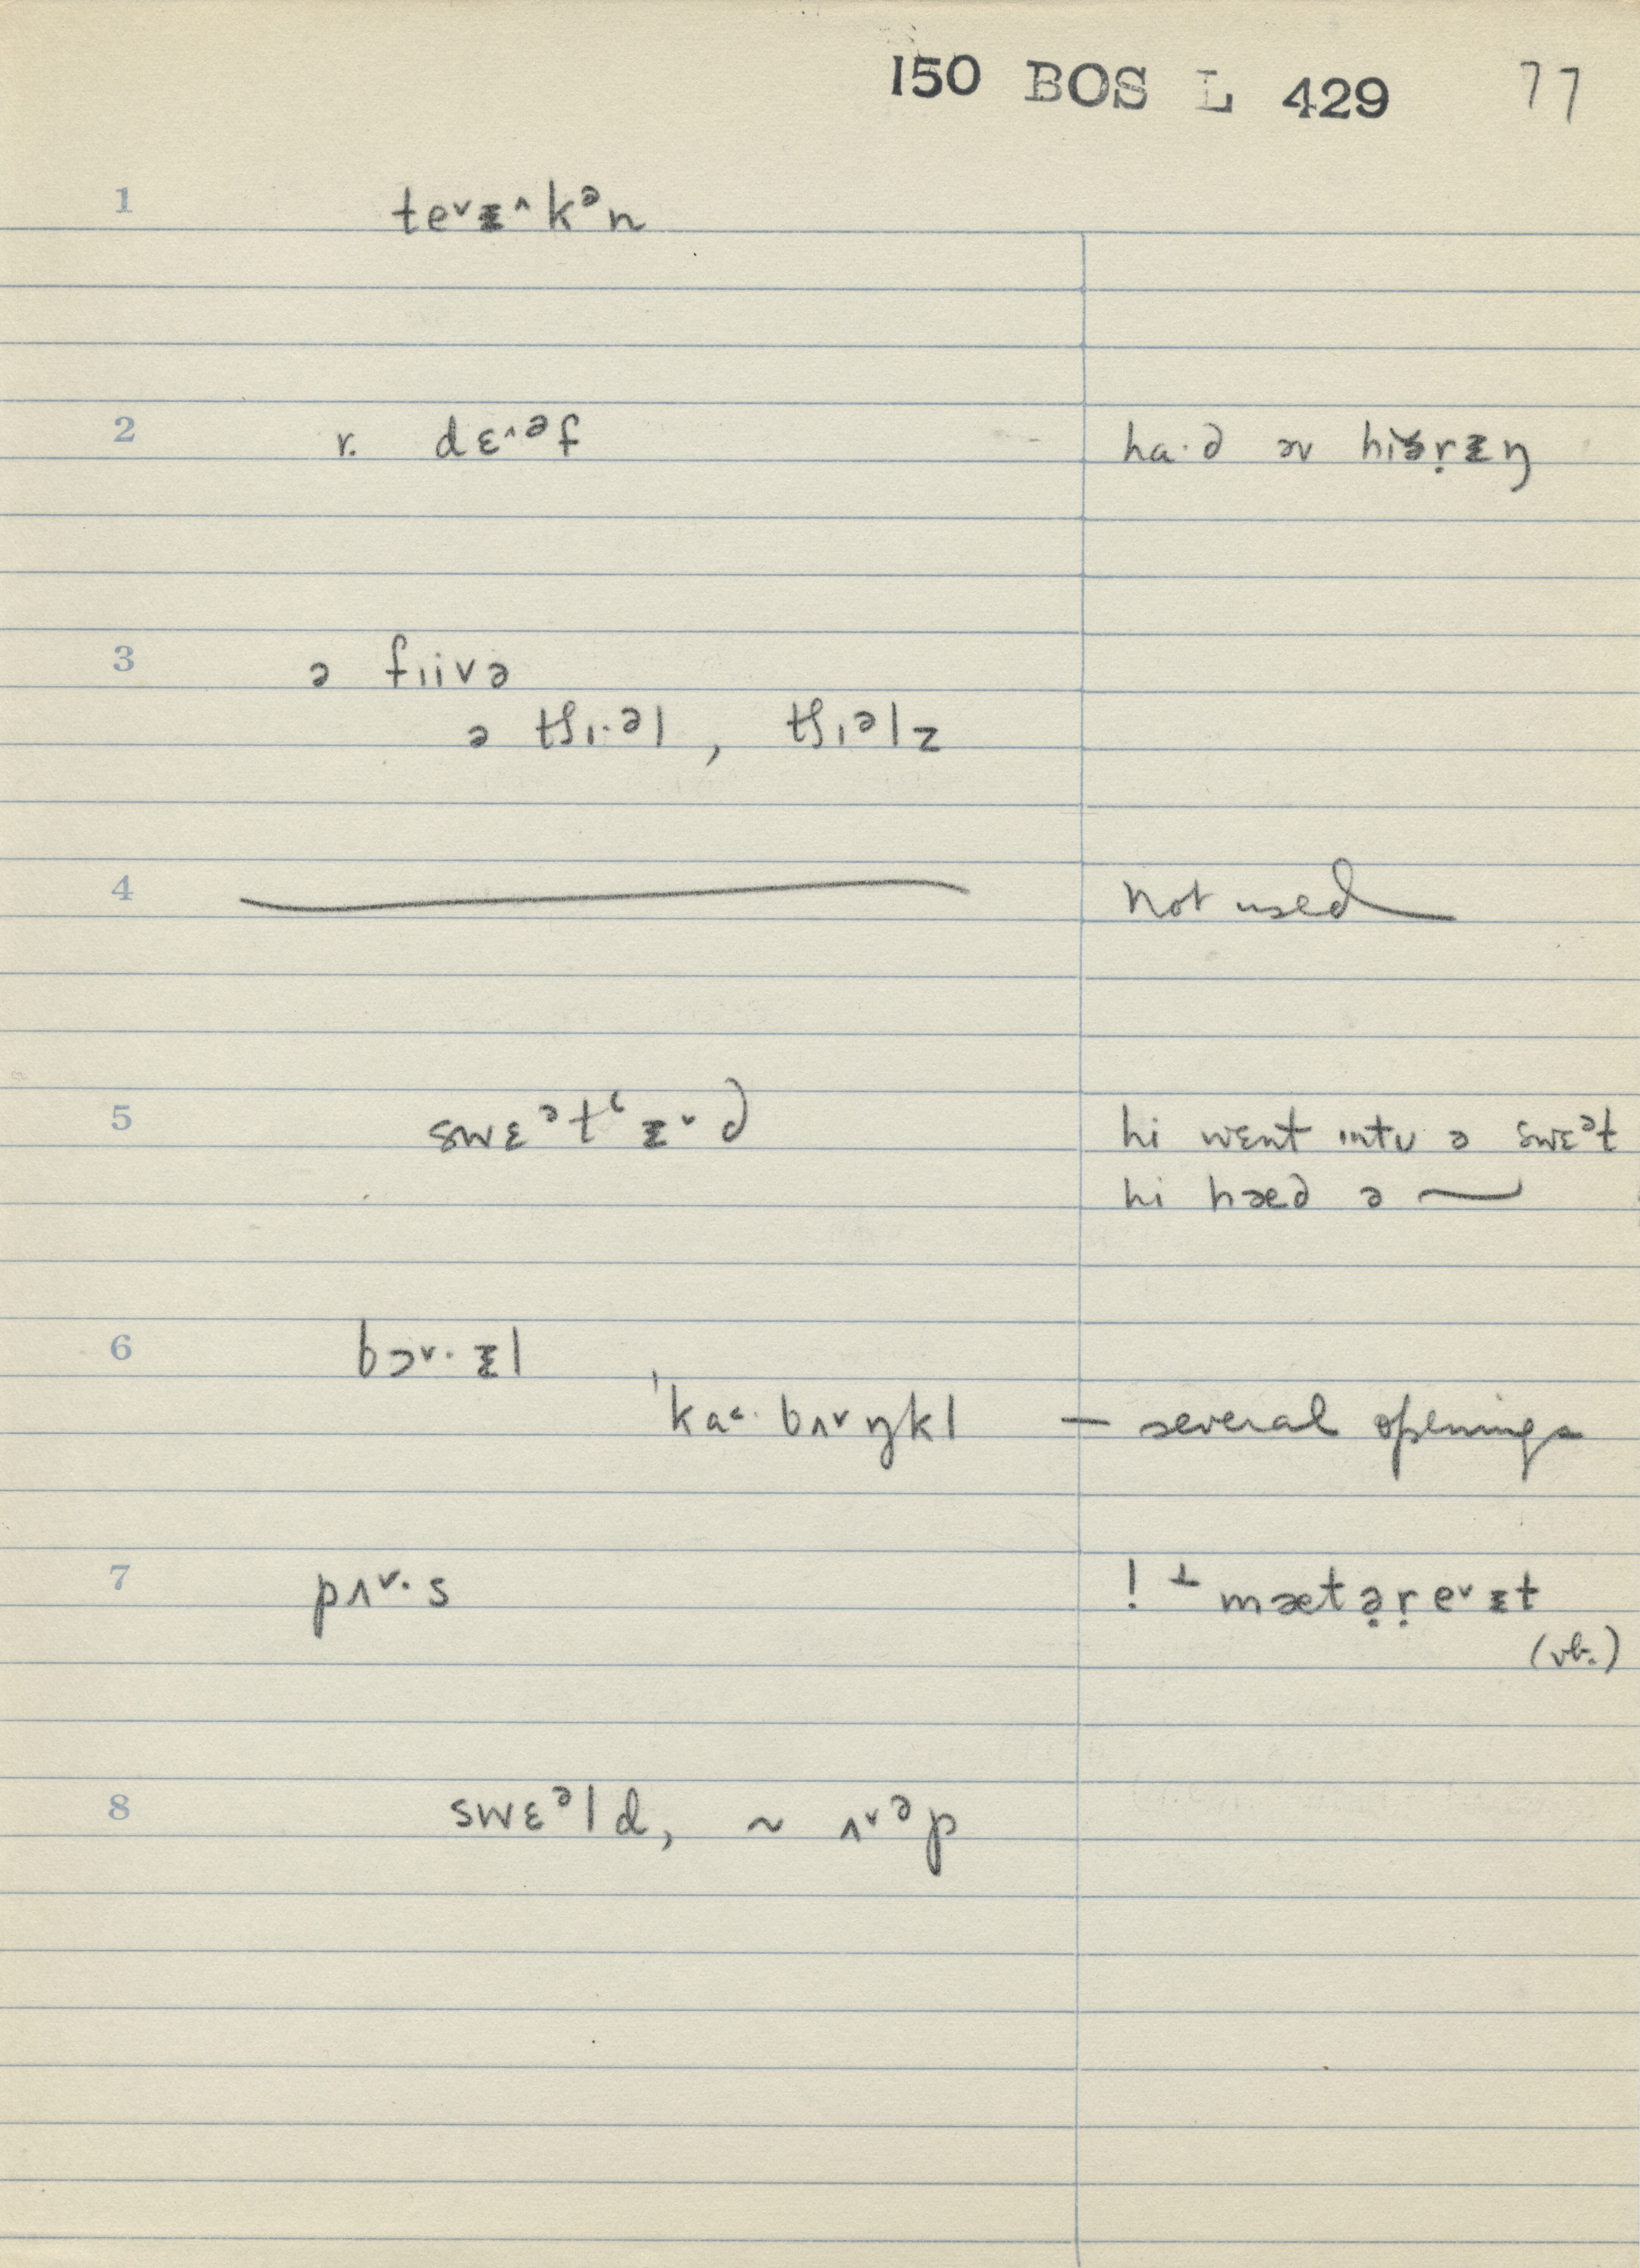 150 BOS L 429 77
1 te˅ᵻ˄kᵊn
2 r. dɛ˄ᵊf ha·d əv hiərᵻŋ
3 ə fɪivə
ə tʃɪ·əl, tʃɪəlz
4 not used
5 swɛᵊtʻᵻ˅d hi wɛnt ɪntʊ ə swɛᵊt
hi hæd ə
6 bɔ˅·ᵻl
ˈka˂·bʌ˅ŋkl — several openings
7 pʌ˅·s ! ⊥ mætə̣ṛe˅ᵻt
(vb.)
8 swɛᵊld, ~ ʌ˅ᵊp